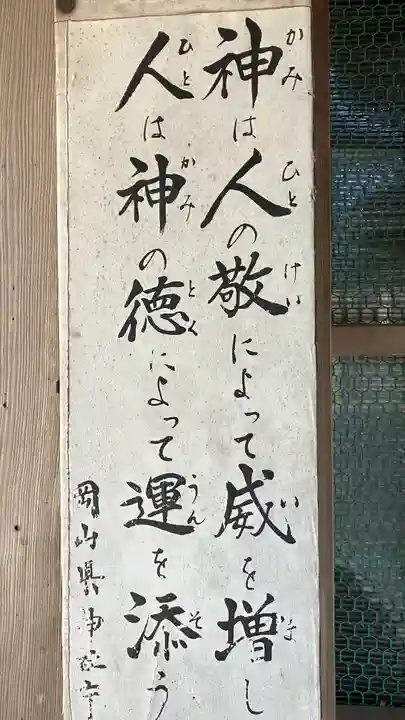 神は人の敬によって威を増し
かみ ひと けい い ま
人は神の徳によって運を添う
ひと かみ とく うん そ
岡山県神社庁